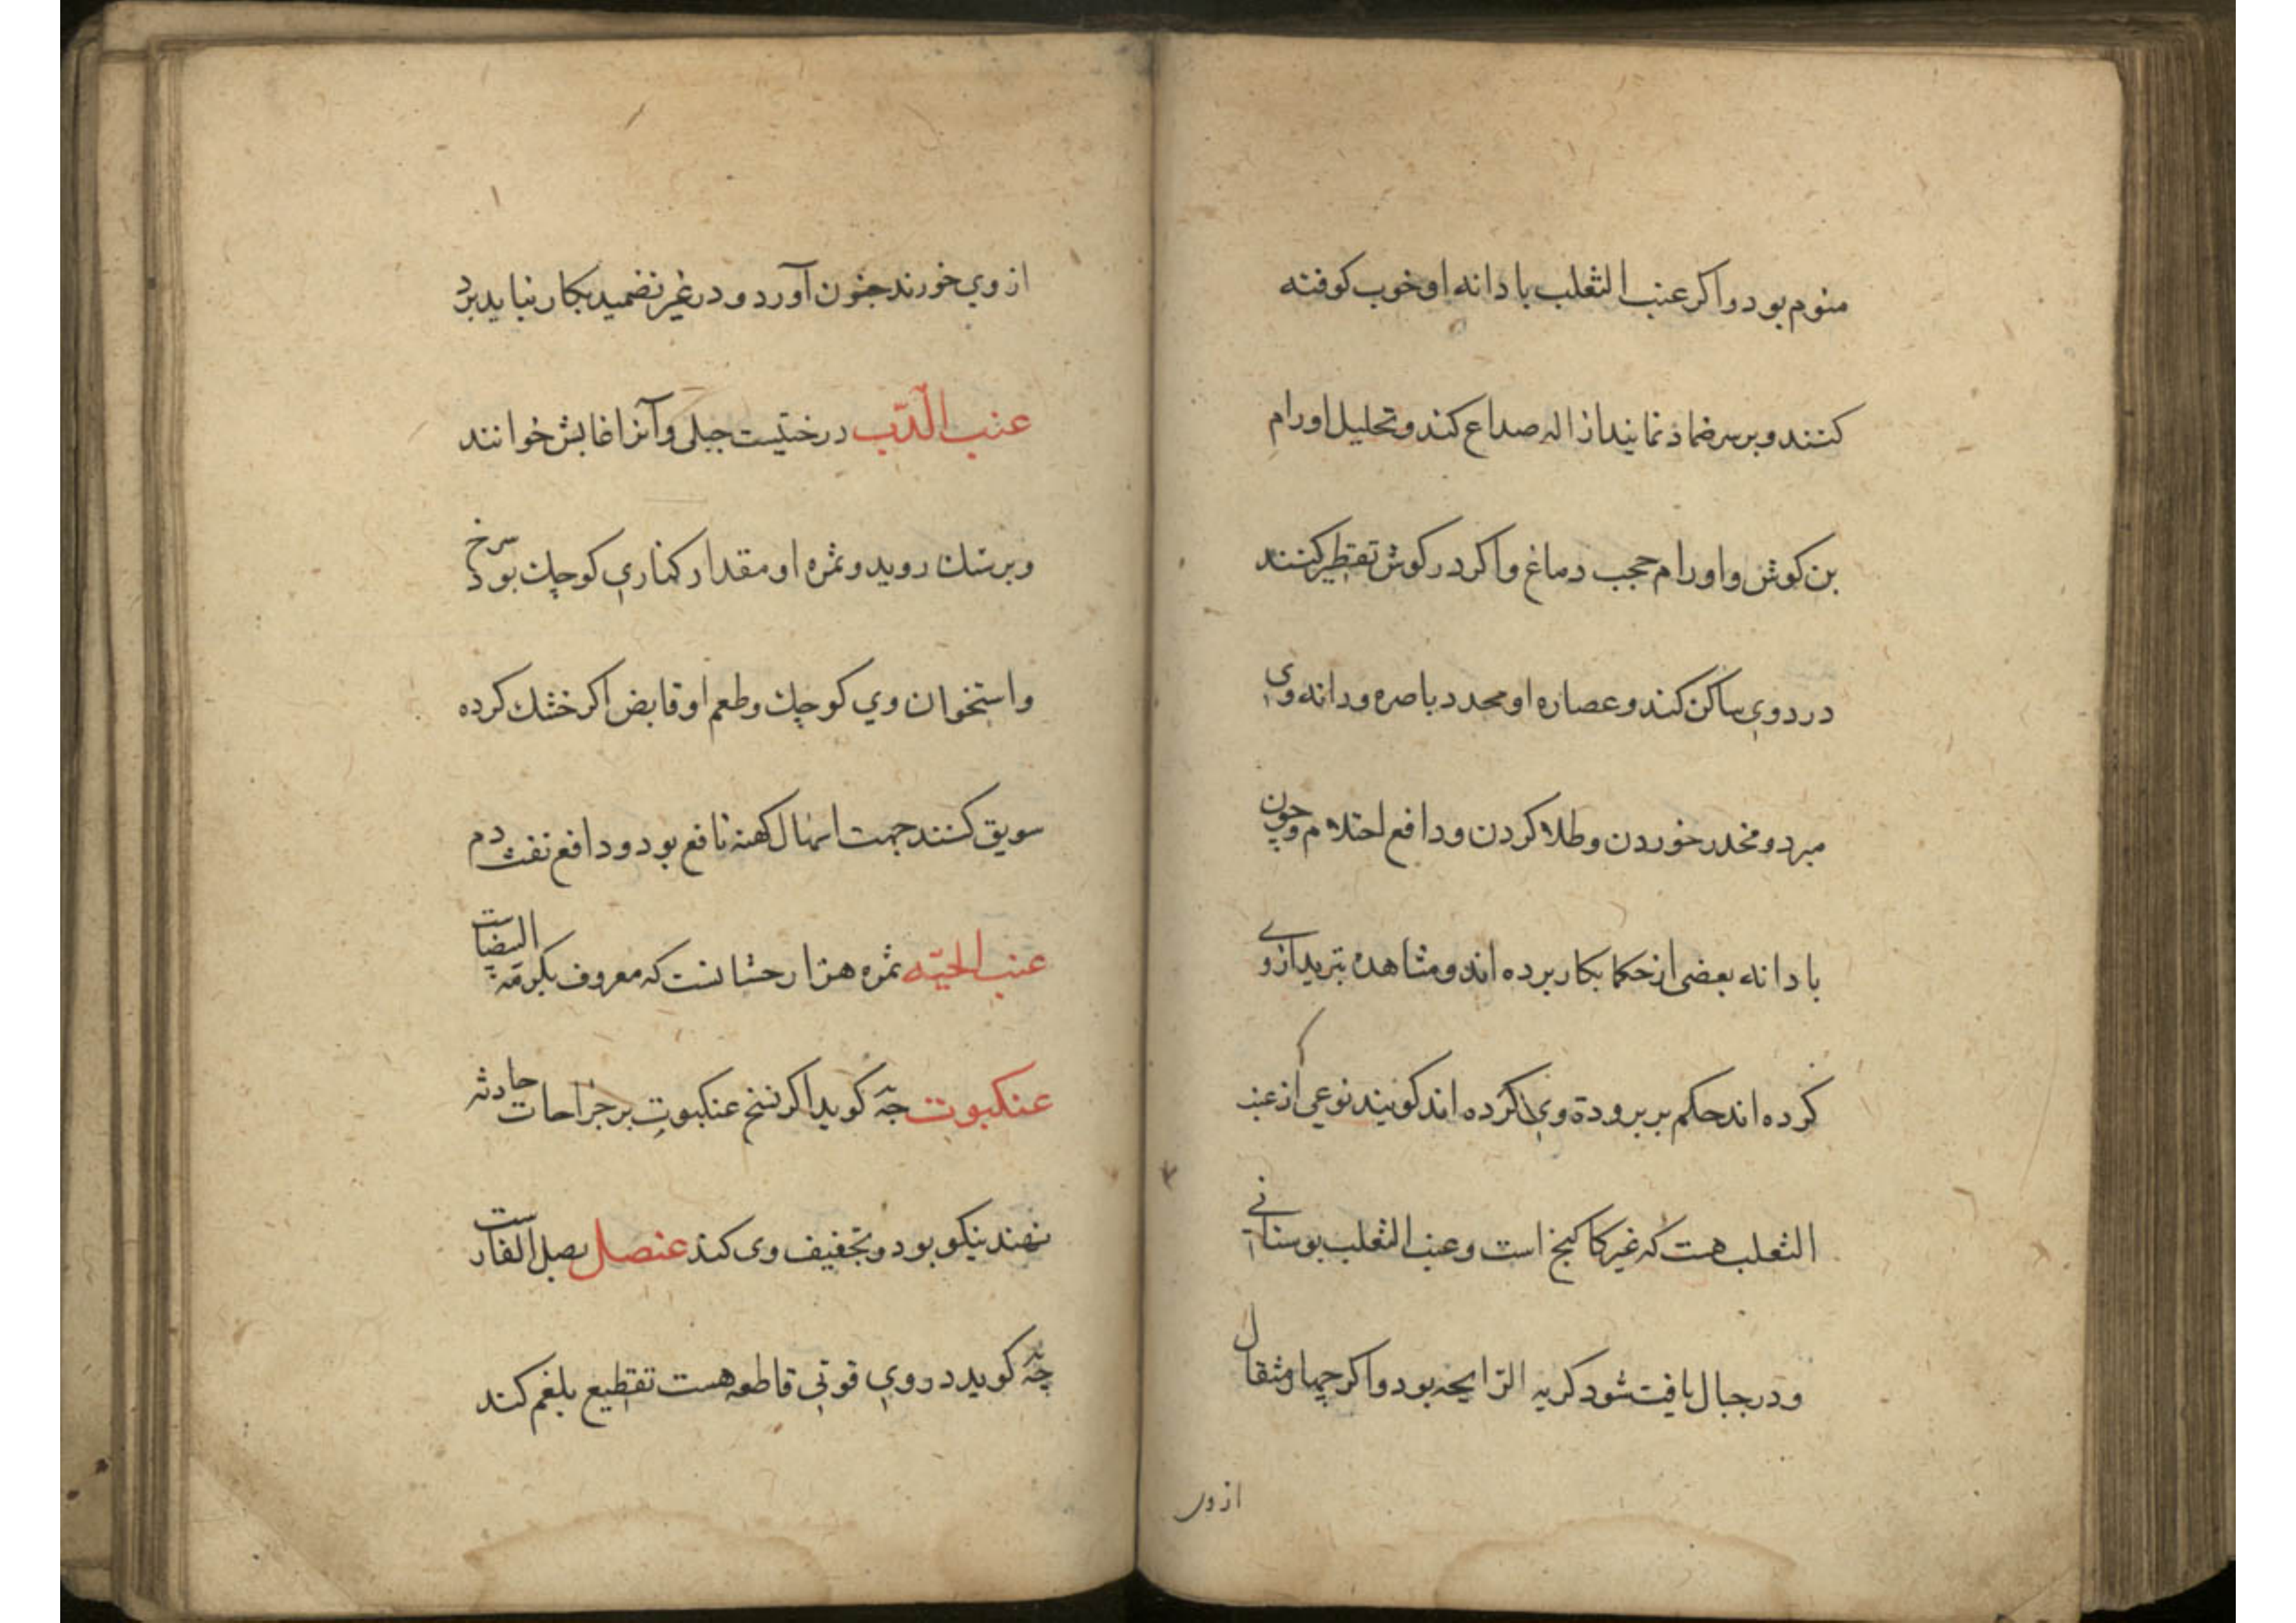 منوم بود واکر عنب الثعلب با دانه او خوب کوفته
کنند و بر سر ضماد نمایند ازاله صداع کند و تحلیل اورام
بن کوش و اورام حجب دماغ واکر در کوش تقطیر کنند
درد وی ساکن کند و عصاره او محدد باصره و دانه وی
مبرد و مخدر خوردن و طلا کردن و دافع احتلام و چون
با دانه بعضی از حکما بکار برده اند و مشاهده تبرید از وی
کرده اند حکم بر برودة وی کرده اند کویند نوعی از عنب
الثعلب هست که غیر کاکنج است و عنب الثعلب بوستانی
و در جبال یافت شود کریه الرایحه بود واکر چهار مثقال
از وی
از وی خورند جنون آورد و در غیر تضمید بکار نباید برد
عنب الدّب درختیست جبلی و آنرا غابش خوانند
و برسنك روید و ثمره او مقدار کناری کوچك بود سرخ
واستخوان وی کوچك و طعم او قابض اکر خشك کرده
سویق کنند جهت اسهال کهنه نافع بود و دافع نفث دم
عنب الحیّه ثمره هزار حشانست که معروف بکرمة البیضاست
عنکبوت جَه کوید اکر نسج عنکبوت بر جراحات حادثه
نهند نیکو بود و تجفیف وی کند عنصل بصل الفارست
جَه کوید در وی قوتی قاطعه هست تقطیع بلغم کند